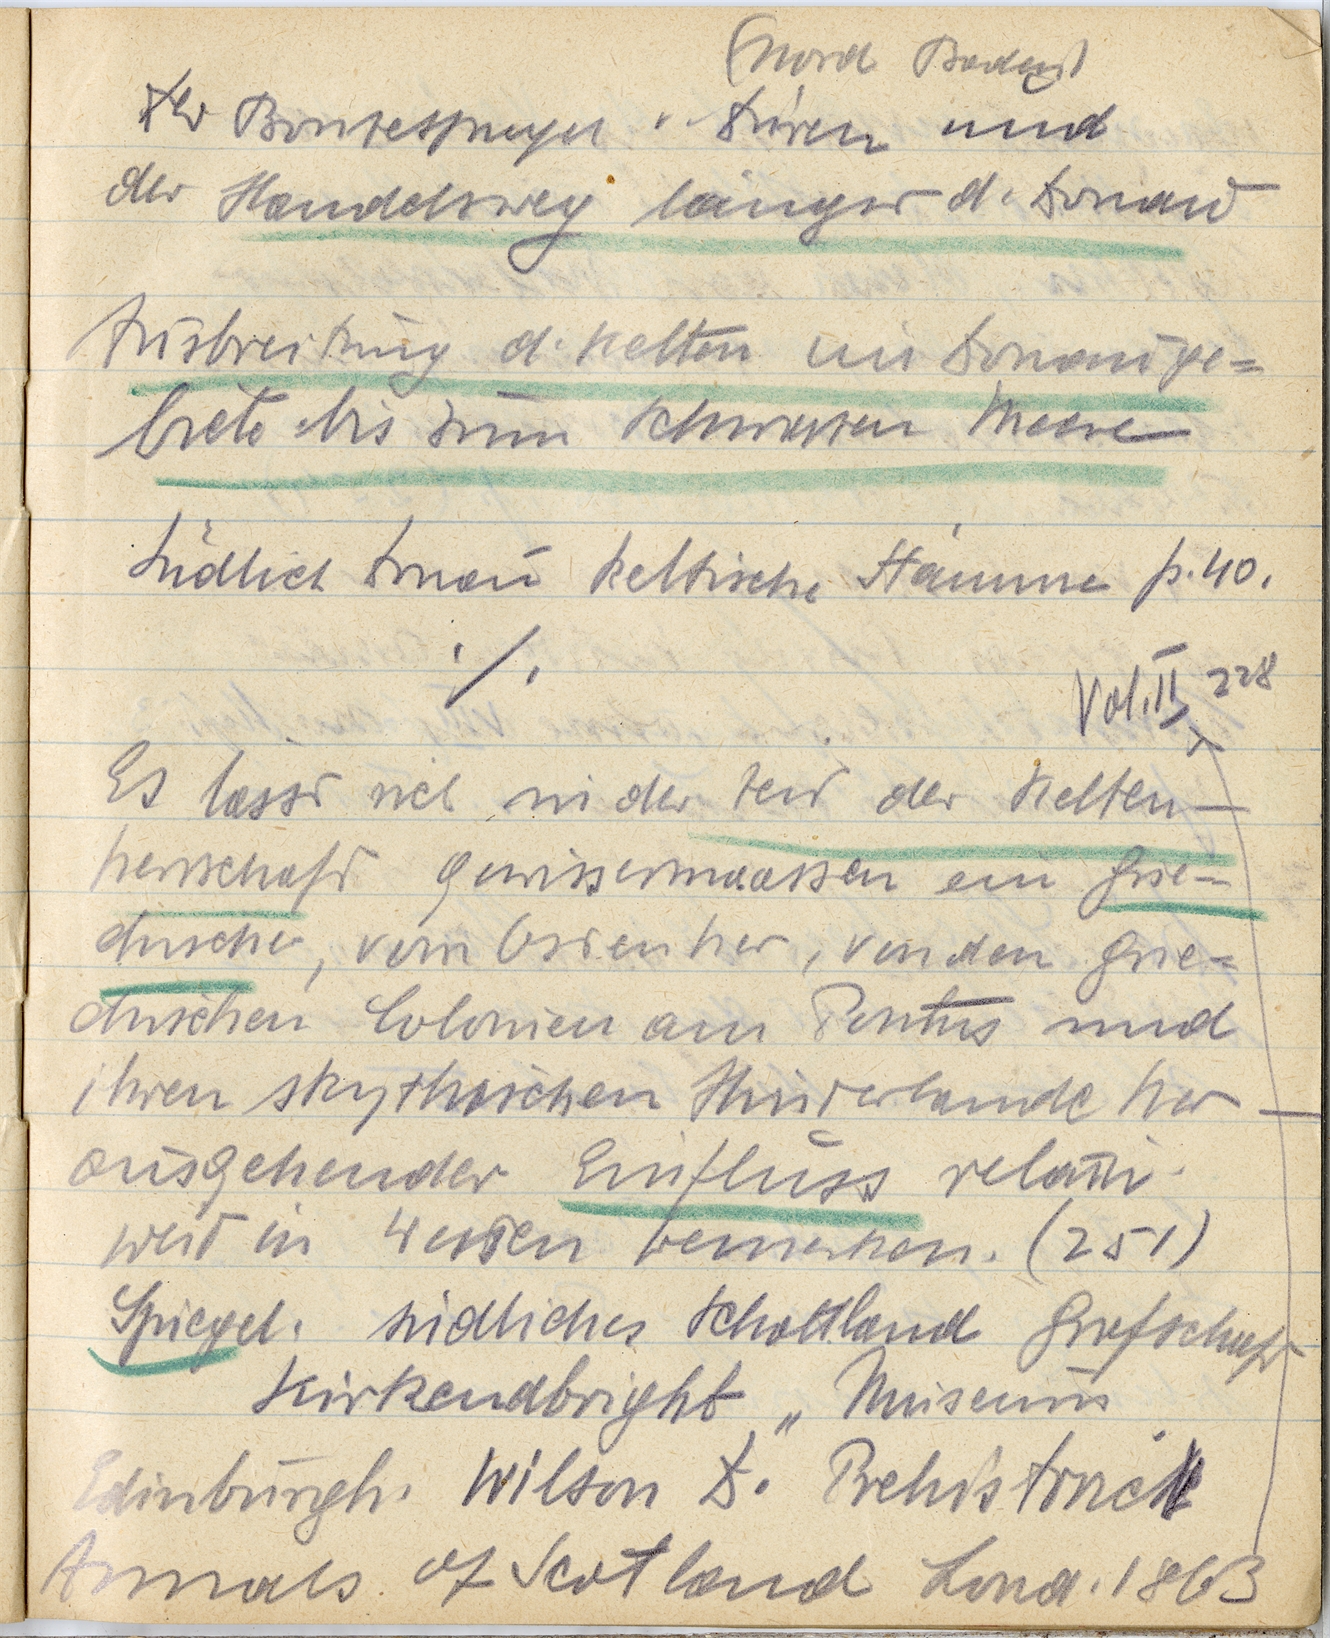 (Nord Baden)
Der Bronzespiegel v. Düren und
der Handelsweg längs d. Donau
Ausbreitung d. Kelten im Donauge=
biete bis zum Schwarzen Meere
Südlich Donau keltische Stämme p. 40.
./.
Vol. II, 228
Es lässt sich in der Zeit der Kelten-
herrschaft gewissermaassen ein Grie=
chischer, vom Osten her, von den Grie=
chischen Colonien am Pontus und
ihren skythischen Hinterlande her
ausgehender Einfluss relativ
weit im Westen bemerken. (251)
Spiegel. südliches Schottland Grafschaft
Kirkendbright „ Museum
Edinburgh. Wilson D. Prehistoric
Annals of Scotland Lond. 1863